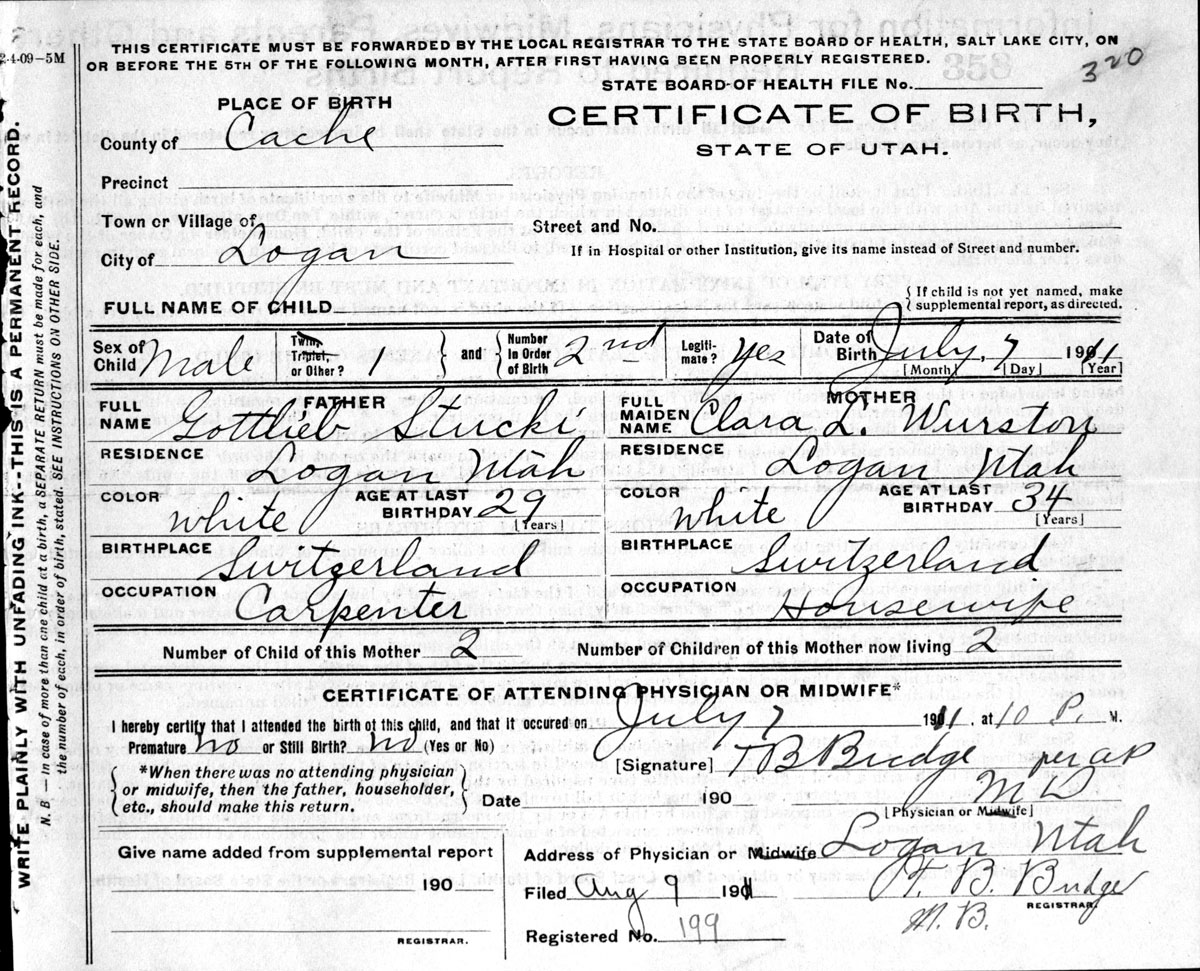 2-4-09-5M
THIS CERTIFICATE MUST BE FORWARDED BY THE LOCAL REGISTRAR TO THE STATE BOARD OF HEALTH, SALT LAKE CITY, ON
OR BEFORE THE 5TH OF THE FOLLOWING MONTH, AFTER FIRST HAVING BEEN PROPERLY REGISTERED.
320
STATE BOARD OF HEALTH FILE No.
PLACE OF BIRTH
CERTIFICATE OF BIRTH,
STATE OF UTAH.
County of Cache
Precinct
Town or Village of
Street and No.
City of Logan
If in Hospital or other Institution, give its name instead of Street and number.
FULL NAME OF CHILD
If child is not yet named, make
supplemental report, as directed.
Sex of Child Male
Twin, Triplet, or Other? 1 and Number in Order of Birth 2nd
Legiti-mate? Yes
Date of Birth July, 7 1911
[Month] [Day] [Year]
FATHER
FULL NAME Gottlieb Stucki
RESIDENCE Logan Utah
COLOR White AGE AT LAST BIRTHDAY 29
[Years]
BIRTHPLACE Switzerland
OCCUPATION Carpenter
MOTHER
FULL MAIDEN NAME Clara L. Wurston
RESIDENCE Logan Utah
COLOR White AGE AT LAST BIRTHDAY 34
[Years]
BIRTHPLACE Switzerland
OCCUPATION Housewife
Number of Child of this Mother 2 Number of Children of this Mother now living 2
CERTIFICATE OF ATTENDING PHYSICIAN OR MIDWIFE*
I hereby certify that I attended the birth of this child, and that it occured on July 7 1911, at 10 P. M.
Premature No or Still Birth? No (Yes or No)
[Signature] T B Budge per
M D
*When there was no attending physician
or midwife, then the father, householder,
etc., should make this return.
Date 190
[Physician or Midwife]
Give name added from supplemental report
190
REGISTRAR.
Address of Physician or Midwife Logan Utah
Filed Aug 9 1911 T. B. Budge
REGISTRAR.
Registered No. 199
WRITE PLAINLY WITH UNFADING INK---THIS IS A PERMANENT RECORD.
N. B. — In case of more than one child at birth, a SEPARATE RETURN must be made for each, and
the number of each, in order of birth, stated. SEE INSTRUCTIONS ON OTHER SIDE.